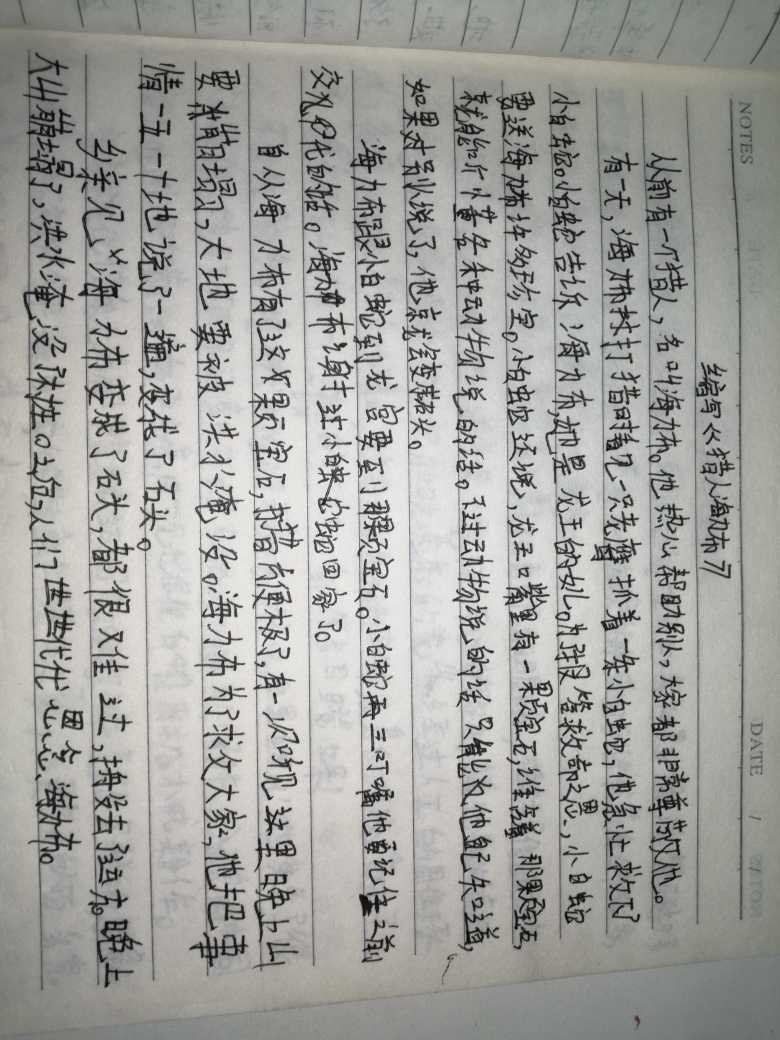 NOTES
DATE /
缩写《猎人海力布》
从前有一个猎人,名叫海力布。他热心帮助别人,大家都非常尊敬他。
有一天,海力布打猎时看见一只老鹰抓着一条小白蛇,他急忙救下
小白蛇。小白蛇告诉海力布,她是龙王的女儿。为报答救命之恩,小白蛇
要送海力布许多珍宝。小白蛇还说,龙王口嘴里有一颗宝石,谁含着那颗宝石,
就能听懂各种动物说的话。不过动物说的话只能他自己知道,
如果对别人说了,他就会变成石头。
海力布跟小白蛇到龙宫要到那颗宝石。小白蛇再三叮嘱他要记住之前
交代的话。海力布谢过小白蛇就回家了。
自从海力布有了这颗宝石,打猎方便极了,有一次听见这里晚上山
要崩塌,大地要被洪水淹没。海力布为了救大家,他把事
情一五一十地说了一遍,变成了石头。
乡亲见海力布变成了石头,都很难过,搬去了远方。晚上
大山崩塌了,洪水淹没村庄。人们世世代代思念海力布。